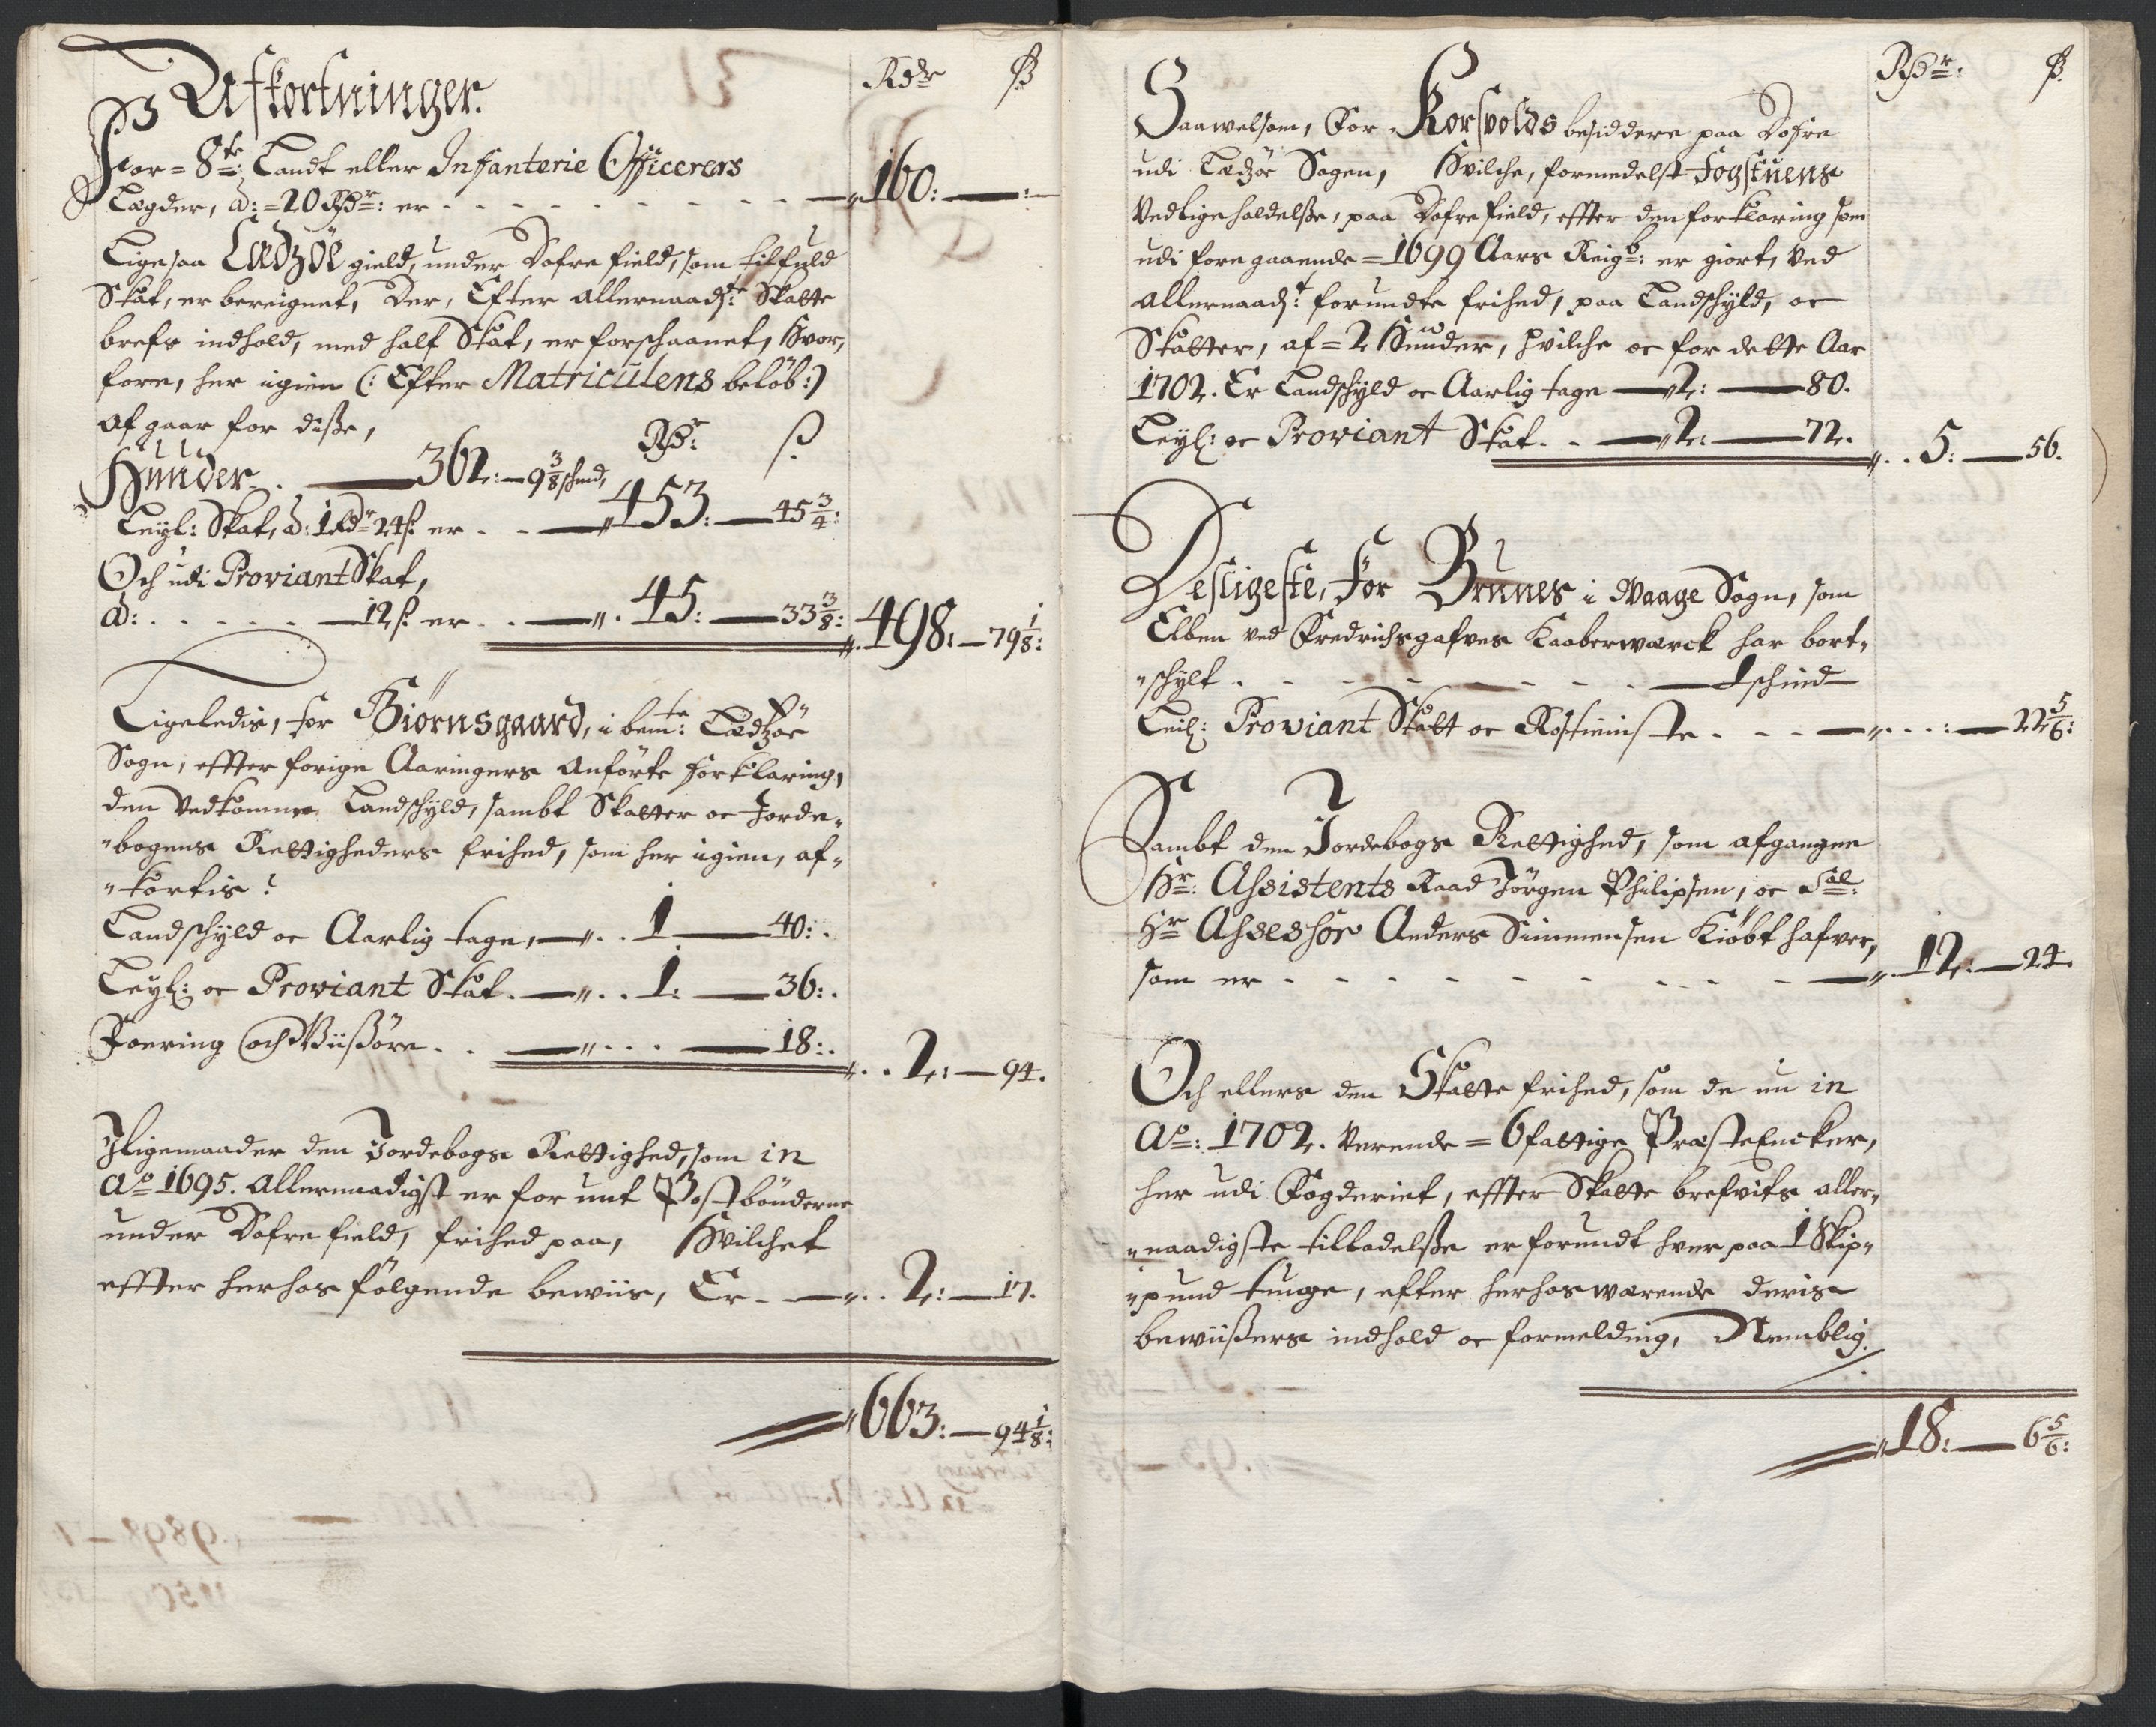 Afkortninger. Rdr ß
For = 8te: Landt eller Infanterie Officerers
Lægder, â: = 20 Rdr: er - - - - - - - - 160: —
Ligesaa Lædzöe gield, under Dofre field, som til fuld
Skat, er bereignet, Der, Efter allernaadste: Skatte
brefs indhold, med half Skat, er forschaanet, Hvor,
fore, her igien (: Efter Matriculens belöb:)
af gaar for disse, Rdr: ß
Hunder. — 362: — 9 3/8 schind,
Leyl: Skat, â: 1 Rdr 24 ß er . - — 453: — 45 3/4:
Och udi Proviant Skat,
â: . . . . . — 12 ß er . . — 45: — 33 3/8: 498: — 79 1/8:
Ligeledis, for Biörnsgaard, i bemte: Lædzöe
Sogn, effter forige Aaringers anförte forklaring,
den vedkomme Landschyld, sambt Skatter oc Jorde-
bogens Rettigheders frihed, som her igien, af-
kortis:
Landschyld oc Aarlig tage, — . . 1 — 40: .
Leyl: oc Proviant Skat. — . . 1: — 36: .
Foering och Wiißöre . . — . . . — 18: . . . 2: — 94.
Jligemaader den Jordebogs Rettighed, som in
Ao 1695. allernaadigst er for unt Postbönderne
under Dofre field, frihed paa, Hvilchet
effter herhos fölgende beviis, Er . — . . 2: — 17.
663: — 94 1/8:
Rdr: ß
Saawelsom, For Korsvolds besiddere paa Dofre
udi Lædzöe Sogen, Hvilche, formedelst Fogstuens
Vedligeholdelße, paa Dofrefield, effter den forklaring som
udi foregaaende = 1699 Aars Reigs: er giort, ved
allernaadst: forundte frihed, paa Landschyld, oc
Skatter, af = 2 Hunder, hvilche oc for dette Aar
1702. Er Landschyld oc Aarlig tage — 2: — 80.
Leyl: oc Proviant Skat. - — 2: — 72. . . 5: — 56.
Desligeste, For Brunes i Waage Sogn, som
Elben ved Fredrichsgafves Kaaberwærck har bort-
schylt . - - - - - - — 1 schind —
Leil: Proviant Skatt oc Rostieniste . - - — . . . : — 22 5/6:
Sambt den Jordebogs Rettighed, som afgangne
Hr: Assistents Raad Jörgen Philipsen, oc Sal:
Hr Assessor Anders Simmensen Kiöbt hafver,
som er - - - - - - - - - — . 12: — 24.
Och ellers den Skatte frihed, som de nu in
Ao: 1702. verende = 6 fattige PræsteEncker,
her udi Fogderiet, effter Skatte brefvits aller-
naadigste tilladelße er forundt hver paa 1 Skip-
pund tunge, efter herhosværende deris
bewiißers indhold oc formelding, Nemblig.
18: — 6 5/6: